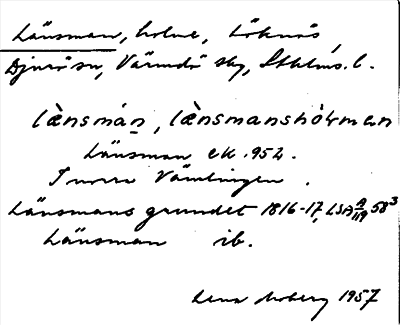 Länsman, holme, Löknäs,
Djurö sn, Värmdö skg, Sthlms. l.
lä̀nsmán, lä̀nsmanshòlman
Länsman ek. 952.
I norra Vämlingen.
Länsmans grundet 1816-17, LSA A 119 58³
Länsman ib.
Lena Moberg 1957